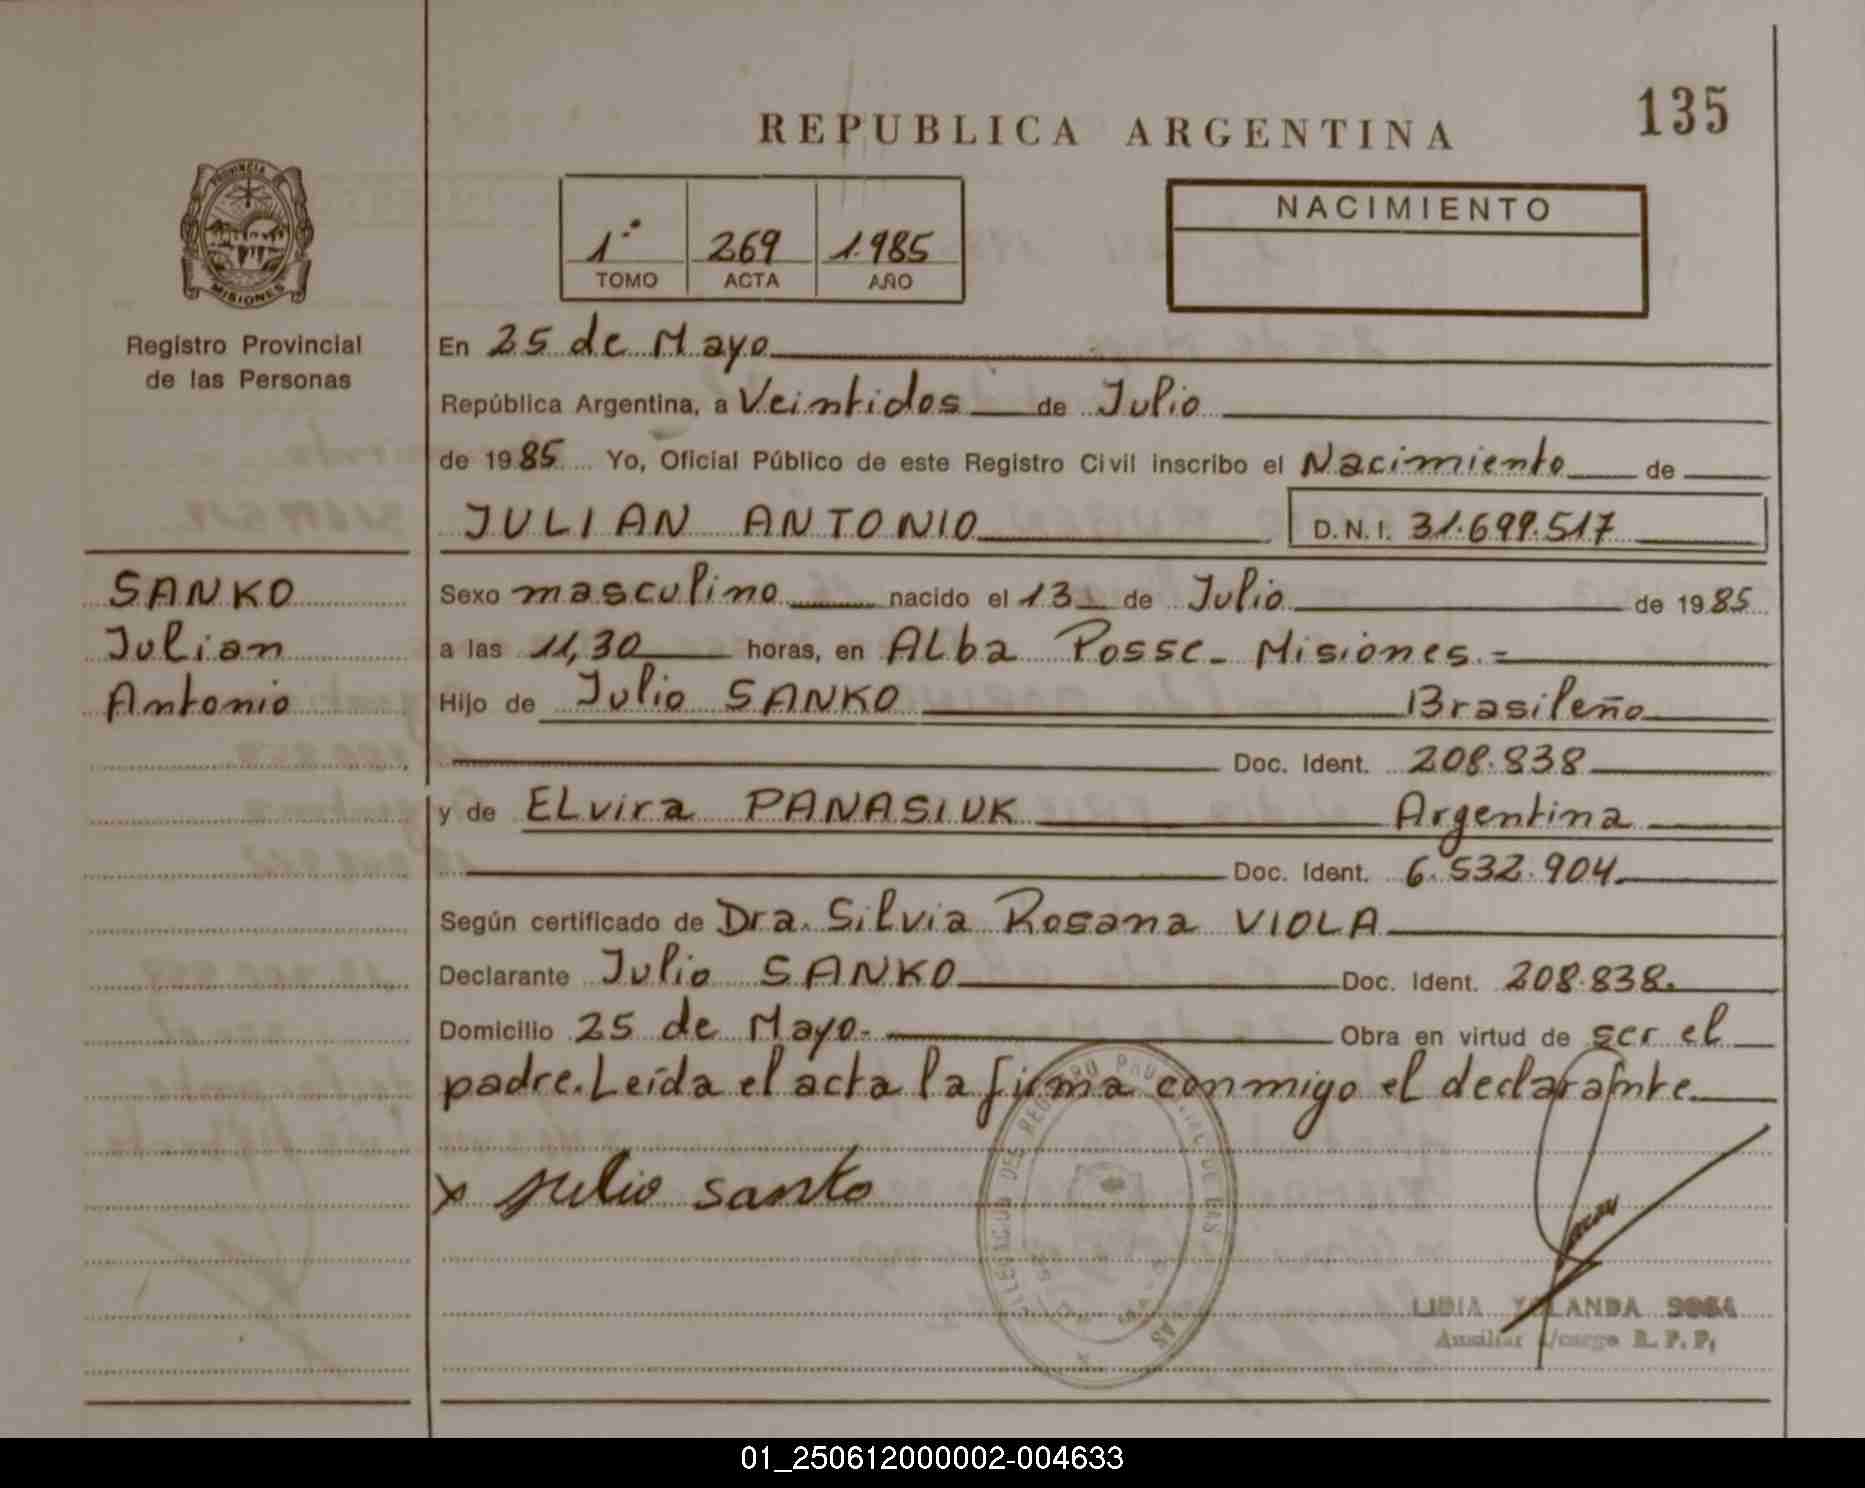 135
REPUBLICA ARGENTINA
PROVINCIA DE
MISIONES
Registro Provincial
de las Personas
1º 269 1.985
TOMO ACTA AÑO
NACIMIENTO
En 25 de Mayo
República Argentina, a Veintidos de Julio
de 1985 Yo, Oficial Público de este Registro Civil inscribo el Nacimiento de
JULIAN ANTONIO D.N.I. 31.699.517
SANKO
Julian
Antonio
Sexo masculino nacido el 13 de Julio de 1985
a las 11,30 horas, en Alba Posse - Misiones.=
Hijo de Julio SANKO Brasileño
Doc. Ident. 208.838
y de Elvira PANASIUK Argentina
Doc. Ident. 6.532.904
Según certificado de Dra. Silvia Rosana VIOLA
Declarante Julio SANKO Doc. Ident. 208.838.
Domicilio 25 de Mayo.- Obra en virtud de ser el
padre. Leída el acta la firma conmigo el declarante.
x Julio sanko
LIDIA YOLANDA
Auxiliar a/cargo R. P. P.
01_250612000002-004633